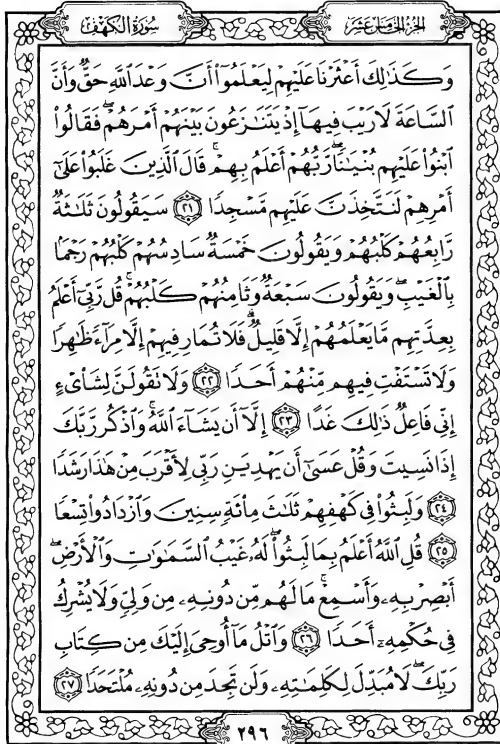 سُورَةُ الكَهْفِ
الجزء الخامس عشر
وَكَذَٰلِكَ أَعْثَرْنَا عَلَيْهِمْ لِيَعْلَمُوٓا۟ أَنَّ وَعْدَ ٱللَّهِ حَقٌّ وَأَنَّ
ٱلسَّاعَةَ لَا رَيْبَ فِيهَآ إِذْ يَتَنَٰزَعُونَ بَيْنَهُمْ أَمْرَهُمْ ۖ فَقَالُوا۟
ٱبْنُوا۟ عَلَيْهِم بُنْيَٰنًا ۖ رَّبُّهُمْ أَعْلَمُ بِهِمْ ۚ قَالَ ٱلَّذِينَ غَلَبُوا۟ عَلَىٰٓ
أَمْرِهِمْ لَنَتَّخِذَنَّ عَلَيْهِم مَّسْجِدًا ٢١ سَيَقُولُونَ ثَلَٰثَةٌ
رَّابِعُهُمْ كَلْبُهُمْ وَيَقُولُونَ خَمْسَةٌ سَادِسُهُمْ كَلْبُهُمْ رَجْمًۢا
بِٱلْغَيْبِ ۖ وَيَقُولُونَ سَبْعَةٌ وَثَامِنُهُمْ كَلْبُهُمْ ۚ قُل رَّبِّىٓ أَعْلَمُ
بِعِدَّتِهِم مَّا يَعْلَمُهُمْ إِلَّا قَلِيلٌ ۗ فَلَا تُمَارِ فِيهِمْ إِلَّا مِرَآءً ظَٰهِرًا
وَلَا تَسْتَفْتِ فِيهِم مِّنْهُمْ أَحَدًا ٢٢ وَلَا تَقُولَنَّ لِشَا۟ىْءٍ
إِنِّى فَاعِلٌ ذَٰلِكَ غَدًا ٢٣ إِلَّآ أَن يَشَآءَ ٱللَّهُ ۚ وَٱذْكُر رَّبَّكَ
إِذَا نَسِيتَ وَقُلْ عَسَىٰٓ أَن يَهْدِيَنِ رَبِّى لِأَقْرَبَ مِنْ هَٰذَا رَشَدًا
٢٤ وَلَبِثُوا۟ فِى كَهْفِهِمْ ثَلَٰثَ مِا۟ئَةٍ سِنِينَ وَٱزْدَادُوا۟ تِسْعًا
٢٥ قُلِ ٱللَّهُ أَعْلَمُ بِمَا لَبِثُوا۟ ۖ لَهُۥ غَيْبُ ٱلسَّمَٰوَٰتِ وَٱلْأَرْضِ ۖ
أَبْصِرْ بِهِۦ وَأَسْمِعْ ۚ مَا لَهُم مِّن دُونِهِۦ مِن وَلِىٍّ وَلَا يُشْرِكُ
فِى حُكْمِهِۦٓ أَحَدًا ٢٦ وَٱتْلُ مَآ أُوحِىَ إِلَيْكَ مِن كِتَابِ
رَبِّكَ ۖ لَا مُبَدِّلَ لِكَلِمَٰتِهِۦ وَلَن تَجِدَ مِن دُونِهِۦ مُلْتَحَدًا ٢٧
٢٩٦